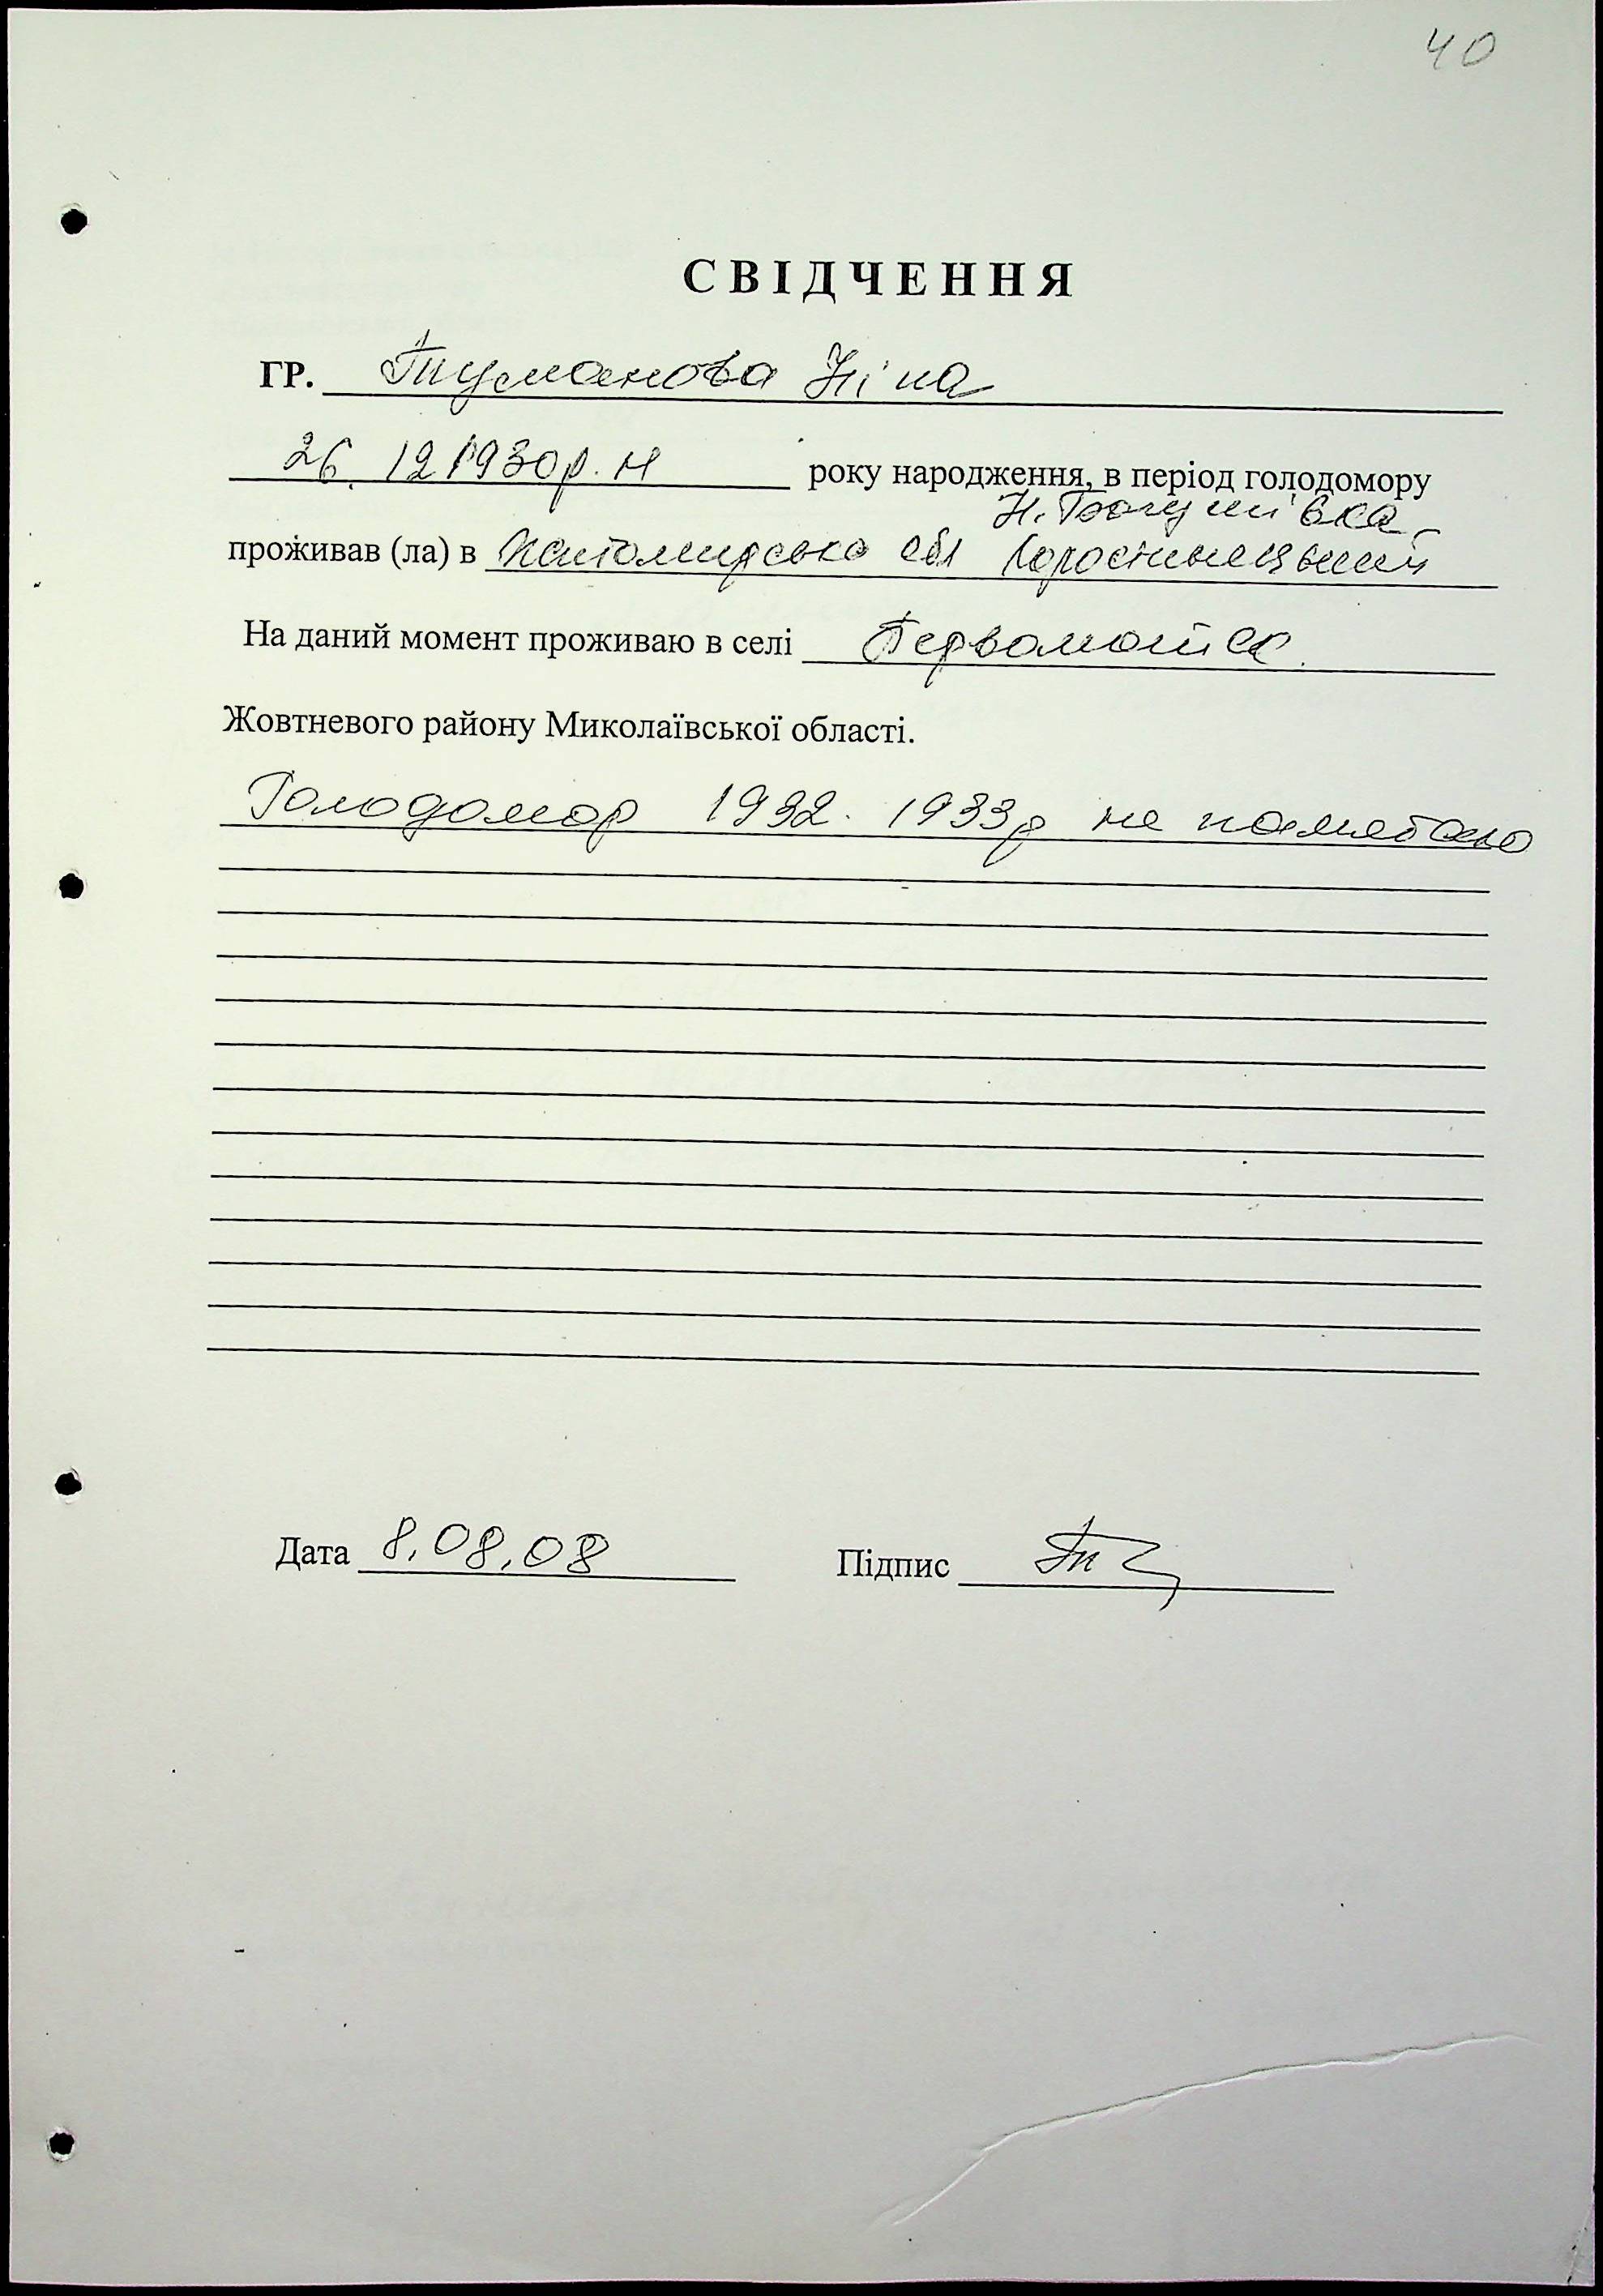 40
СВІДЧЕННЯ
ГР. Туманова Ніна
26. 12 1930 р. н року народження, в період голодомору
Н.
проживав (ла) в Житомирська обл Коростишецький
На даний момент проживаю в селі Первомайск
Жовтневого району Миколаївської області.
Голодомор 1932. 1933р не памятаю
Дата 8.08.08 Підпис